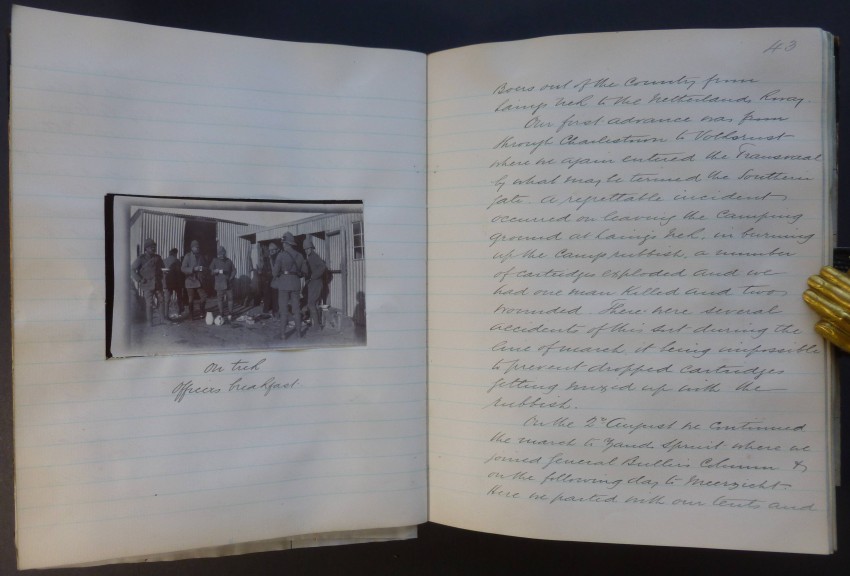 on trek
Officers breakfast
43
Boers out of the Country from
Laings Nek to the Netherlands Rway.
Our first advance was from
through Charlestown to Volksrust
where we again entered the Transvaal
by what may be termed the Southern
gate. A regrettable incident
occurred on leaving the Camping
ground at Laings Nek. in burning
up the Camp rubbish, a number
of cartridges exploded and we
had one man killed and two
wounded. There were several
accidents of this sort during the
line of march, it being impossible
to prevent dropped cartridges
getting mixed up with the
rubbish.
On the 2nd August we continued
the march to Zand Spruit where we
joined General Bullers Column &
on the following day to Meerzicht.
Here we parted with our tents and